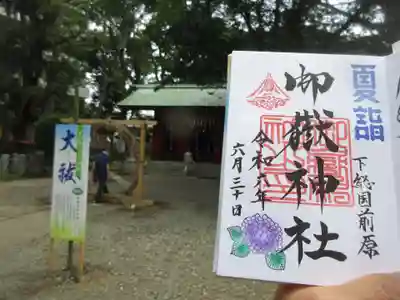 夏詣
下総国前原
御嶽神社
令和六年
六月三十日
大祓